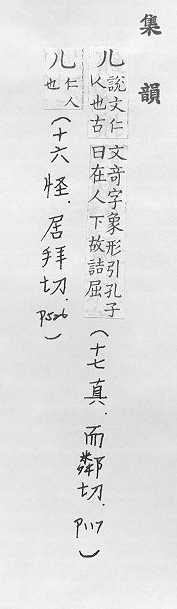 集韻
儿說文仁人也古文奇字象形引孔子曰在人下故詰屈（十七真．而鄰切．p117）
儿仁人也（十六怪．居拜切．p526）